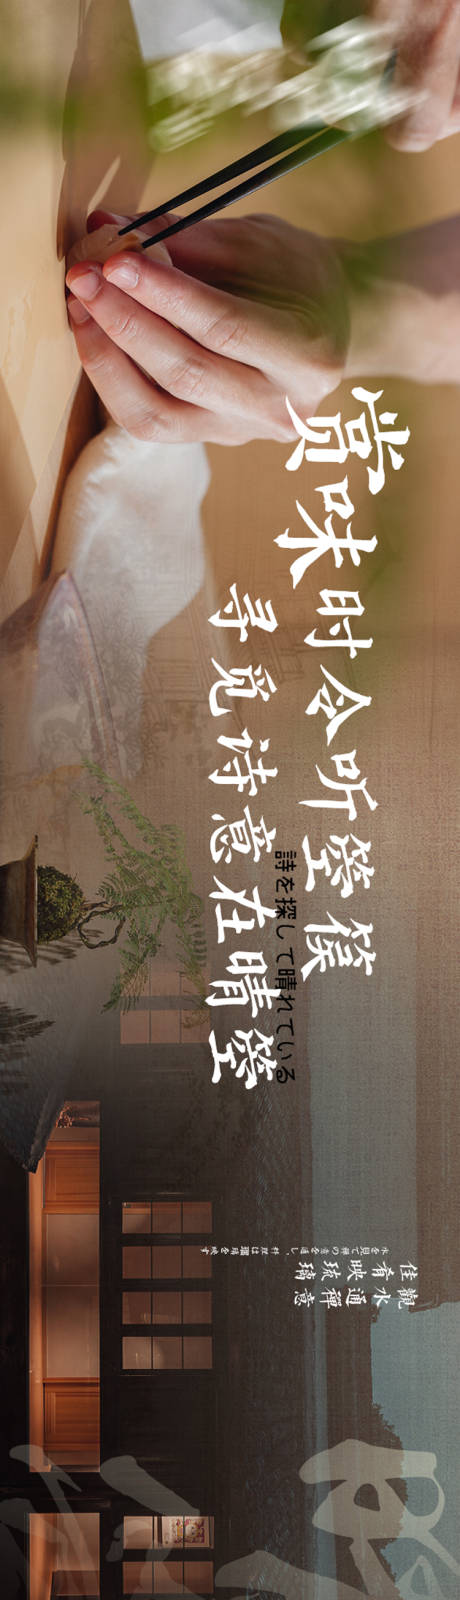 赏味时令听箜篌
寻觅诗意在晴箜
詩を探して晴れている
觀水通禪意
佳肴映琉璃
水を見て禅の意を通し、料理は瑠璃を映す